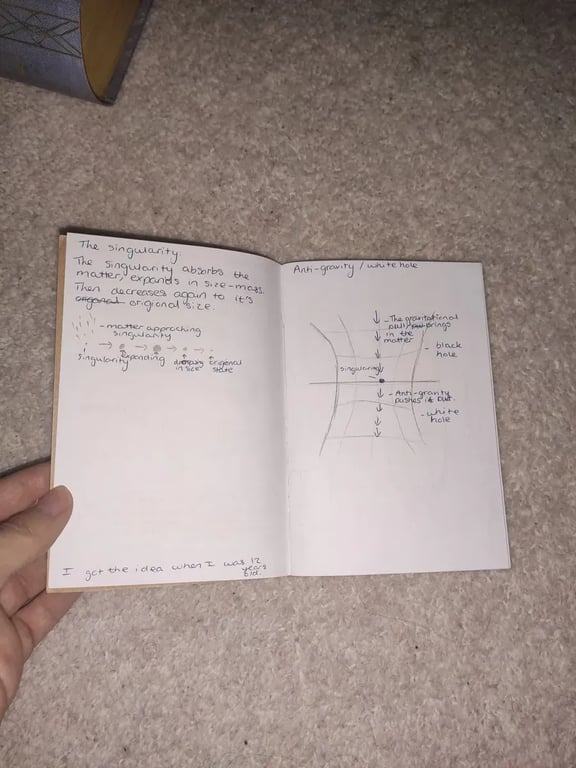 The singularity
The singularity absorbs the
matter, expands in size-mass.
Then decreases again to it's
origonal origional size.
- matter approching
singularity
singularity
Expanding
decreasing
in size
origional
state
I got the idea when I was 12
years
old.
Anti-gravity / white hole
- The gravitational
pull brings
in the
matter
- black
hole
singularity
- Anti-gravity
pushes it out.
- white
hole